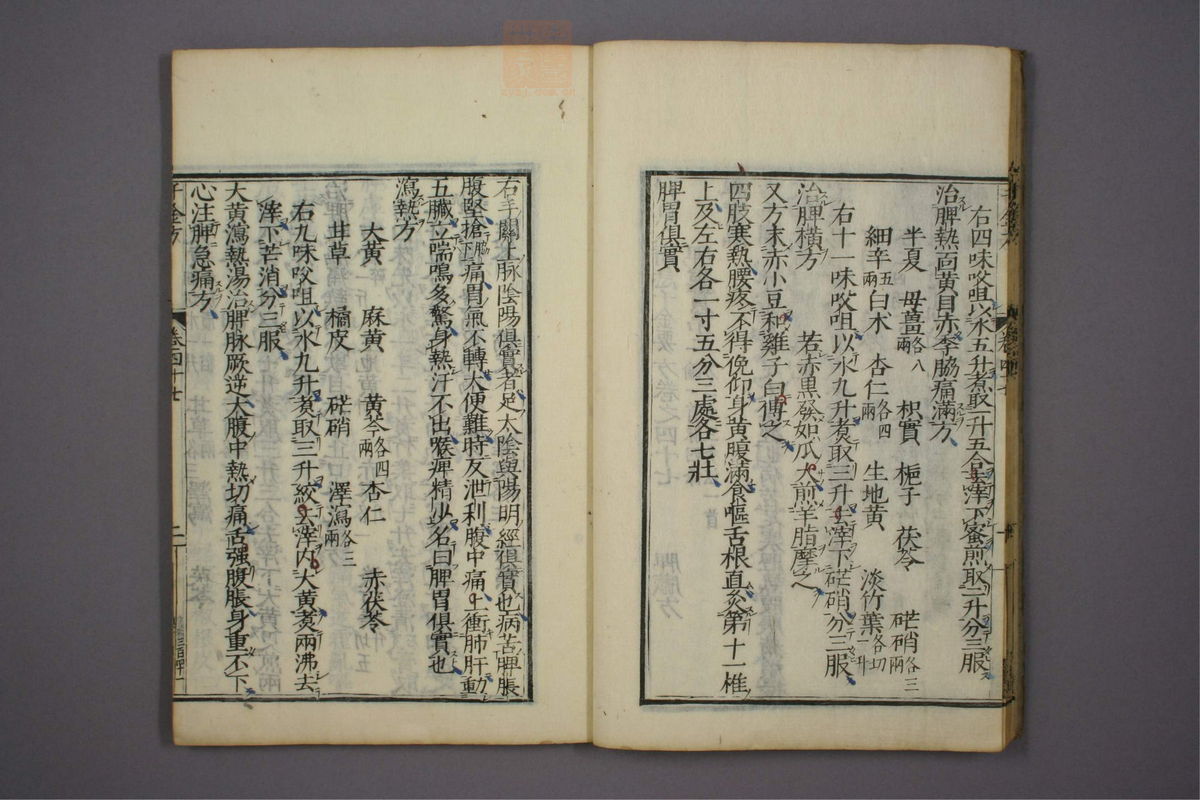 右四味㕮咀以水五升煮取一升五合去滓下蜜煎取一升分三服
治脾熱面黄目赤季脇痛滿方
半夏 母薑各八兩 枳實 梔子 茯苓 芒硝各三兩
細辛五兩 白术 杏仁各四兩 生地黄 淡竹葉各切一升
右十一味㕮咀以水九升煮取三升去滓下芒硝分三服
治脾横方 若赤黒發如瓜大煎羊脂摩之
又方末赤小豆和雞子白傅之
四肢寒熱腰疼不得俛仰身黄腹滿食嘔舌根直灸第十一椎
上及左右各一寸五分三處各七壯
脾胃俱實
右手關上脉陰陽俱實者足太陰與陽明經俱實也病苦脾脹
腹堅搶脇下痛胃氣不轉大便難時反泄利腹中痛上衝肺肝動
五臟立喘鳴多驚身熱汗不出喉痺精少名曰脾胃俱實也
瀉熱方
大黄 麻黄 黄芩各四兩 杏仁 赤茯苓
甘草 橘皮 芒硝 澤瀉各三兩
右九味㕮咀以水九升煮取三升絞去滓内大黄煮兩沸去
滓下芒消分三服
大黄瀉熱湯治脾脉厥逆大腹中熱切痛舌强腹脹身重不下
心注脾急痛方
千金方 卷四十七